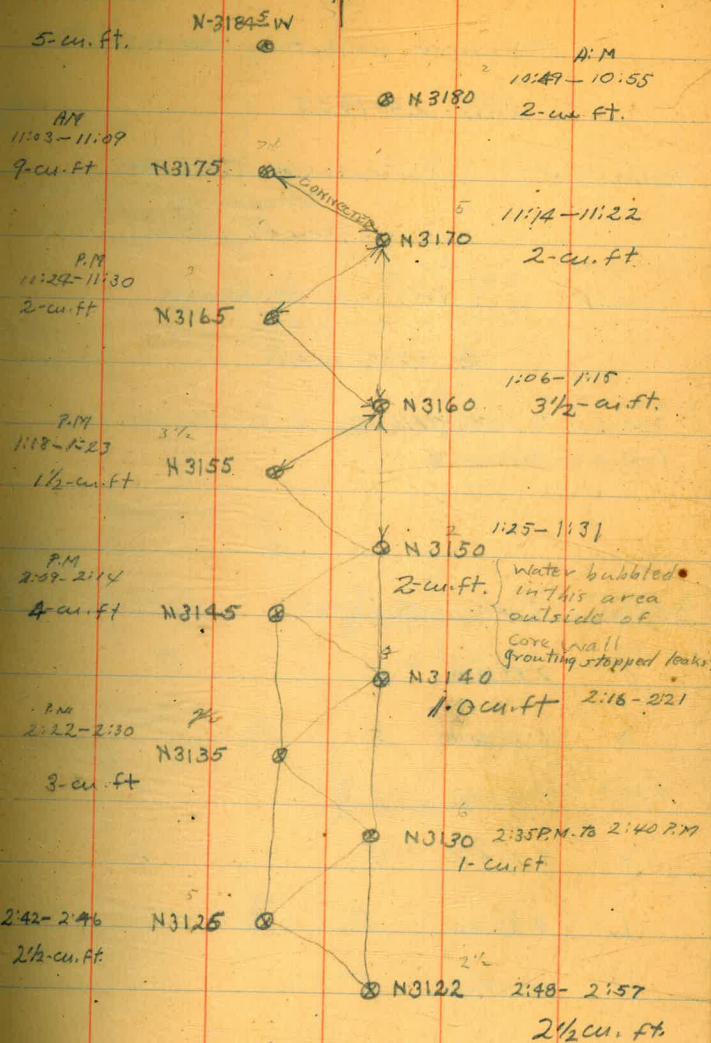 N-3184⁵ W
5-cu. ft.
A.M
10:49 - 10:55
N 3180
2-cu ft.
2
AM
11:03 - 11:09
9-cu. ft
N3175
CONNECTED
5
11:14 - 11:22
N3170
2-cu. ft.
P.M
11:24 - 11:30
2-cu. ft
3
N3165
1:06 - 1:15
N 3160
3 1/2 - cu. ft.
P.M
1:18 - 1:23
1 1/2-cu. ft
3 1/2
N 3155
2
1:25 - 1:31
N 3150
2-cu. ft.
Water bubbled
in this area
outside of
core wall
grouting stopped leaks
P.M
2:09 - 2:14
4-cu. ft
N3145
3
N3140
1.0 cu. ft
2:16 - 2:21
P.M
2:22 - 2:30
3-cu. ft
N3135
6
N3130
2:35 P.M. to 2:40 P.M
1- cu. ft
5
2:42 - 2:46
N3125
2 1/2-cu. ft.
2 1/2
N3122
2:48 - 2:57
2 1/2 cu. ft.